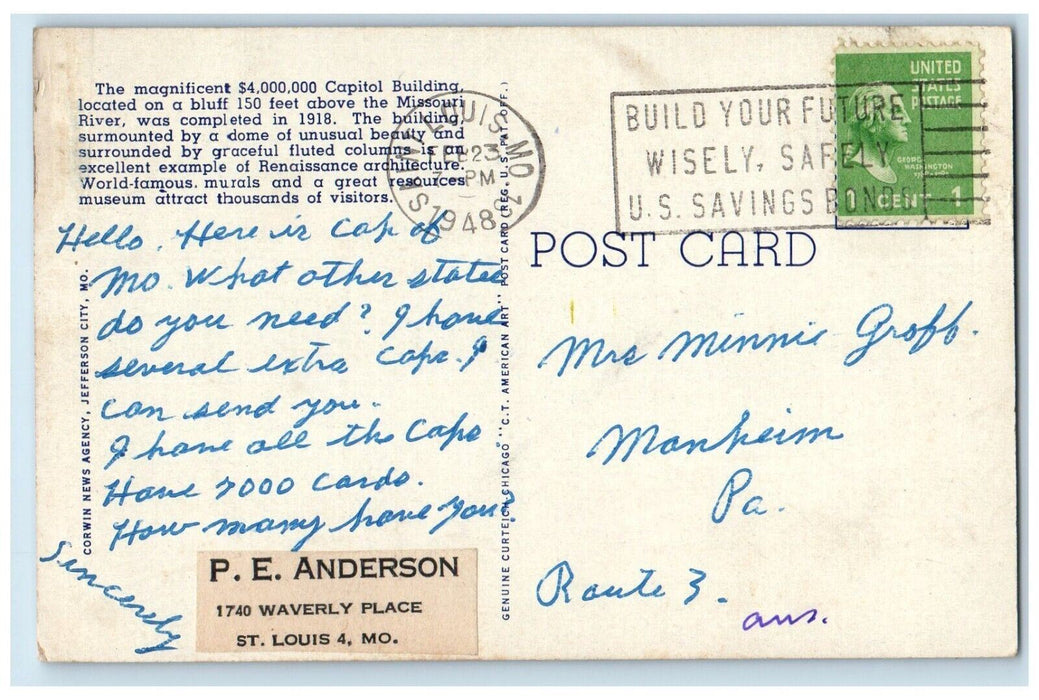 The magnificent $4,000,000 Capitol Building,
located on a bluff 150 feet above the Missouri
River, was completed in 1918. The building,
surmounted by a dome of unusual beauty and
surrounded by graceful fluted columns is an
excellent example of Renaissance architecture.
World-famous. murals and a great resources
museum attract thousands of visitors.
Hello. Here is Cap of
Mo. What other states
do you need? I have
several extra Caps. I
can send you.
I have all the Caps
Have 7000 cards.
How many have you?
Sincerely
P. E. ANDERSON
1740 WAVERLY PLACE
ST. LOUIS 4, MO.
CORWIN NEWS AGENCY, JEFFERSON CITY, MO.
GENUINE CURTEICH-CHICAGO "C.T. AMERICAN ART" POST CARD (REG. U.S. PAT. OFF.)
ST. LOUIS, MO. 2
FEB 23
PM
1948
BUILD YOUR FUTURE
WISELY, SAFELY
U.S. SAVINGS BONDS
UNITED
STATES
POSTAGE
GEORGE
WASHINGTON
1 CENT 1
POST CARD
Mrs Minnie Groff.
Manheim
Pa.
Route 3.
ans.